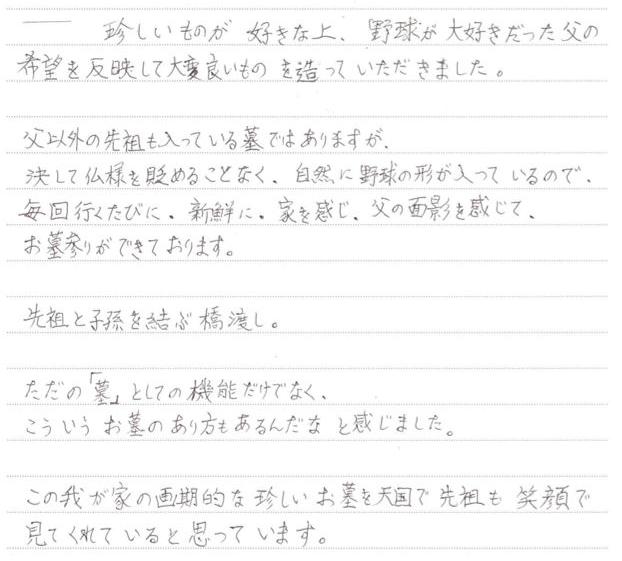 珍しいものが 好きな上、野球が大好きだった父の
希望を反映して大変良いものを造っていただきました。
父以外の先祖も入っている墓ではありますが、
決して仏様を貶めることなく、自然に野球の形が入っているので、
毎回行くたびに、新鮮に、家を感じ、父の面影を感じて、
お墓参りができております。
先祖と子孫を結ぶ橋渡し。
ただの「墓」としての機能だけでなく、
こういうお墓のあり方もあるんだな と感じました。
この我が家の画期的な珍しいお墓を天国で先祖も笑顔で
見てくれていると思っています。